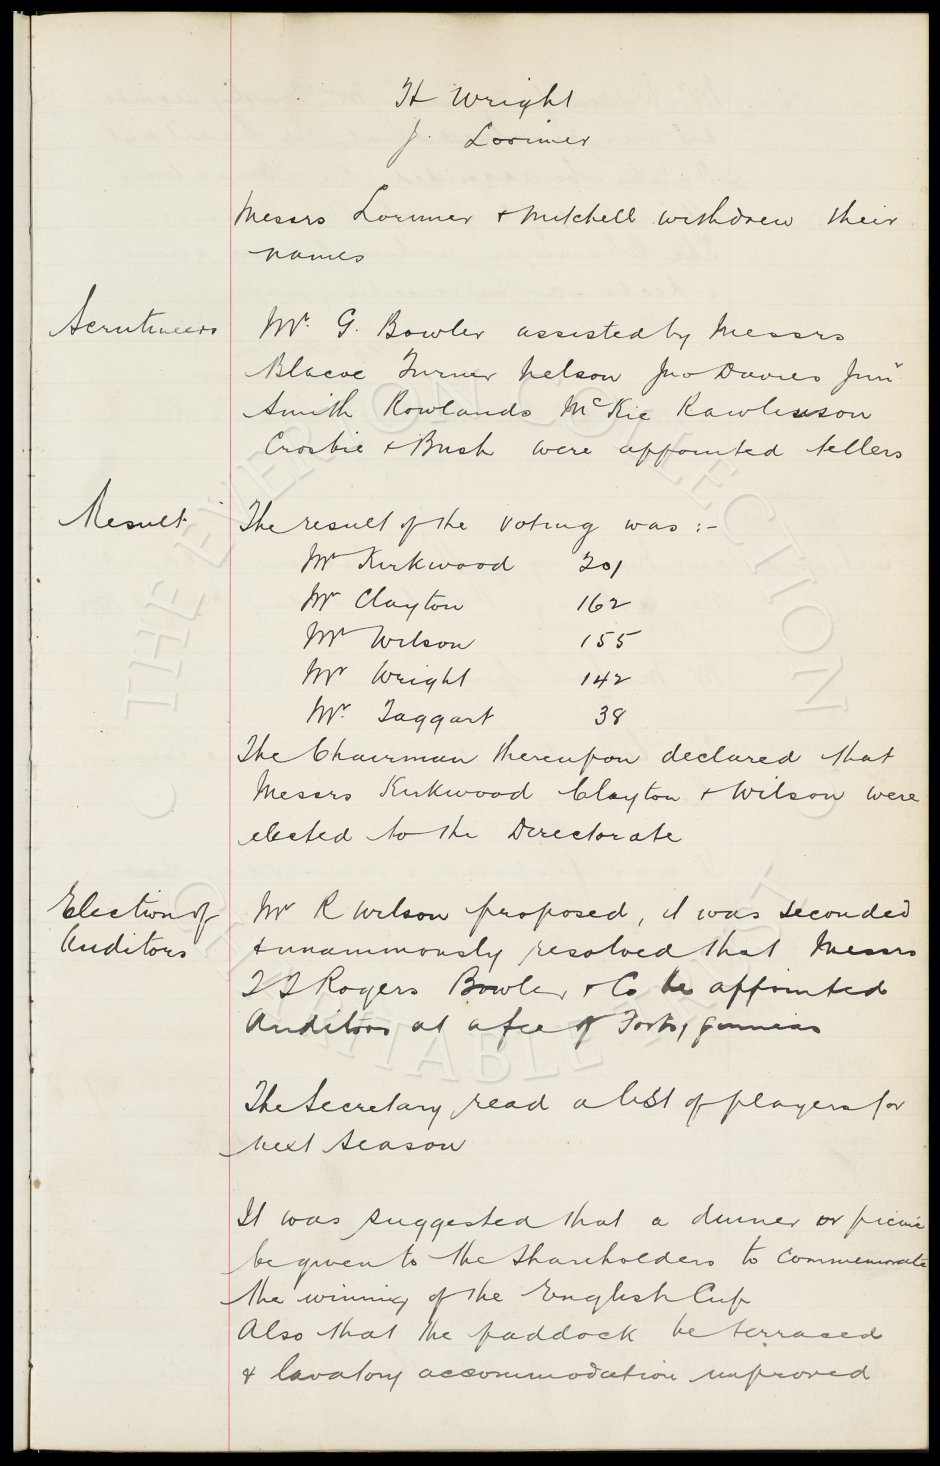 H Wright
J. Lorimer
Messrs Lorimer & Mitchell withdrew their
names
Scrutineers
Mr. G. Bowler assisted by Messrs
Blacoe Turner Nelson Jno Davies Junr
Smith Rowlands McKie Rawlinson
Crosbie & Bush were appointed tellers
Result
The result of the voting was :-
Mr Kirkwood 201
Mr Clayton 162
Mr Wilson 155
Mr Wright 142
Mr. Taggart 38
The Chairman thereupon declared that
Messrs Kirkwood Clayton & Wilson were
elected to the Directorate
Election of
Auditors
Mr R Wilson proposed, it was seconded
& unanimously resolved that Messrs
T T Rogers Bowler & Co be appointed
Auditors at a fee of Forty guineas
The Secretary read a list of players for
next season
It was suggested that a dinner or picnic
be given to the shareholders to commemorate
the winning of the English Cup
Also that the paddock be terraced
& lavatory accommodation improved
THE EVERTON COLLECTION
CHARITABLE TRUST